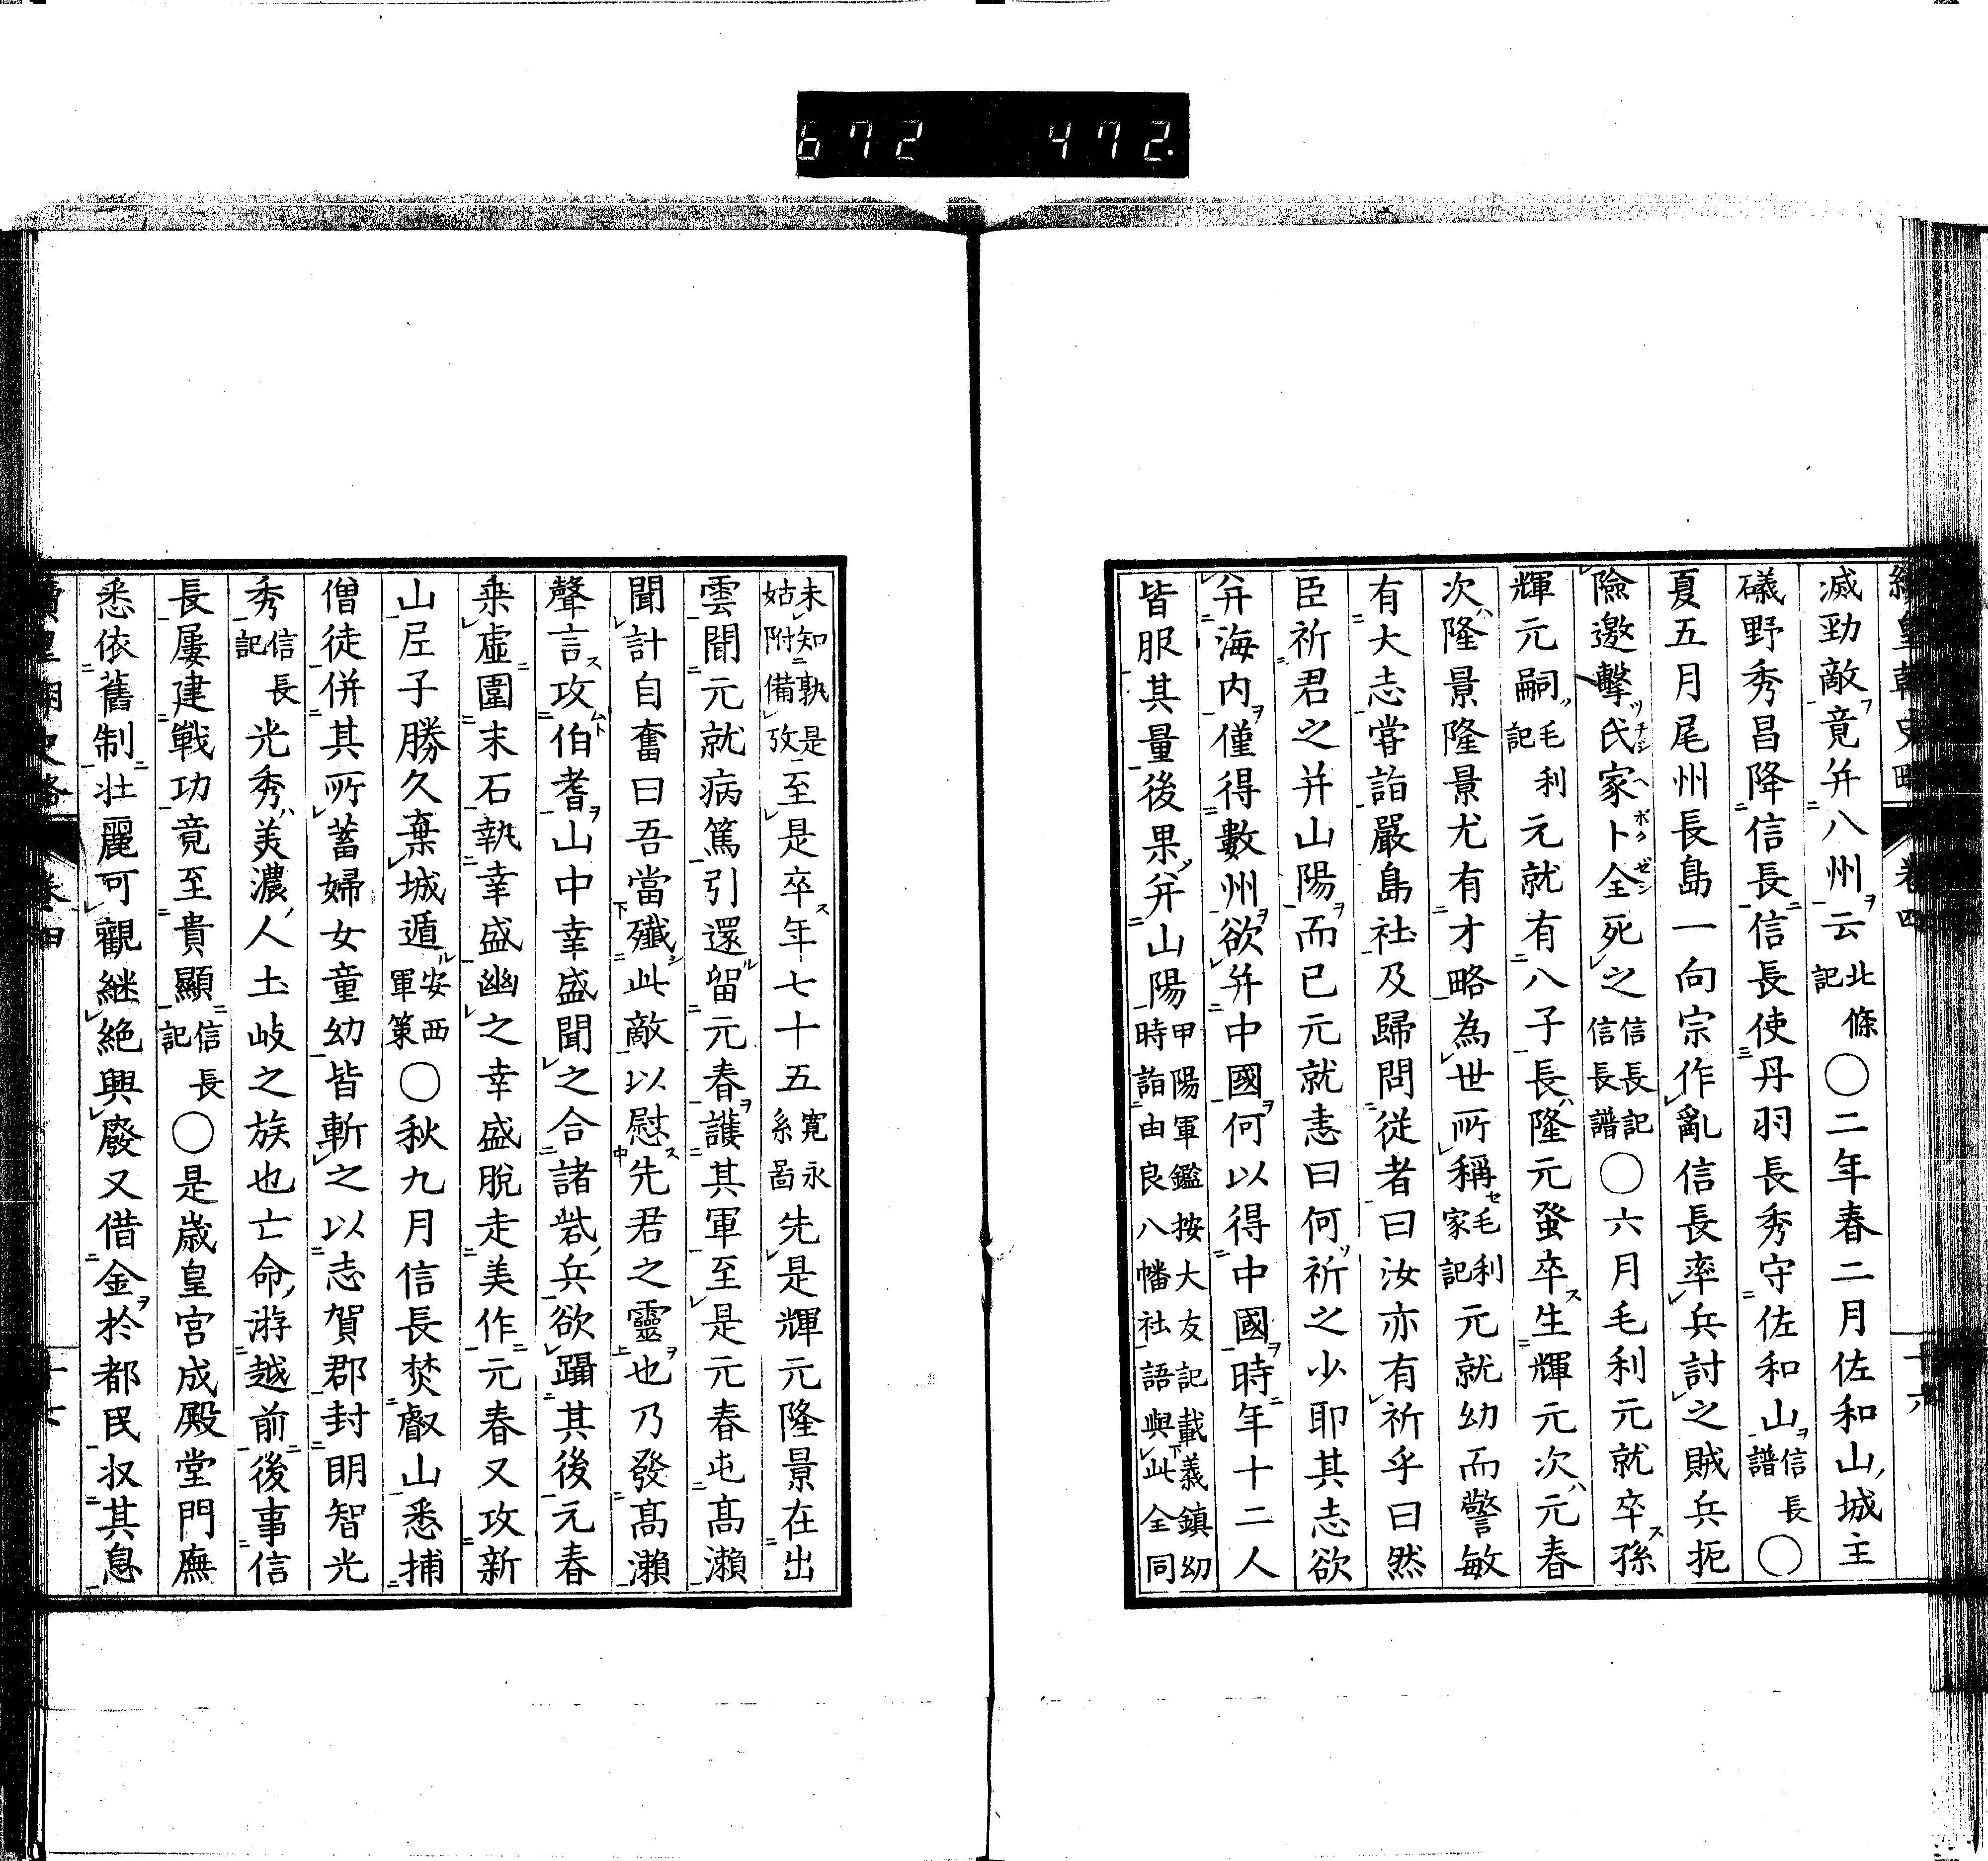 672 472.
滅勁敵竟幷八州云北條記〇二年春二月佐和山城主
礒野秀昌降信長信長使丹羽長秀守佐和山信長譜〇
夏五月尾州長島一向宗作亂信長率兵討之賊兵扼
險邀擊氏家卜全死之信長記信長譜〇六月毛利元就卒孫
輝元嗣毛利記元就有八子長隆元蚤卒生輝元次元春
次隆景隆景尤有才略為世所稱毛利家記元就幼而警敏
有大志嘗詣嚴島社及歸問從者曰汝亦有祈乎曰然
臣祈君之并山陽而已元就恚曰何祈之少耶其志欲
幷海內僅得數州欲幷中國何以得中國時年十二人
皆服其量後果幷山陽甲陽軍鑑按大友記載義鎮幼時詣由良八幡社語與此全同
未知孰是姑附備攷至是卒年七十五寛永系圖先是輝元隆景在出
雲聞元就病篤引還留元春護其軍至是元春屯髙瀨
聞訃自奮曰吾當殲此敵以慰先君之靈也乃發髙瀨
聲言攻伯耆山中幸盛聞之合諸砦兵欲躡其後元春
乘虛圍末石執幸盛幽之幸盛脫走美作元春又攻新
山尼子勝久棄城遁安西軍策〇秋九月信長焚叡山悉捕
僧徒併其所蓄婦女童幼皆斬之以志賀郡封明智光
秀信長記光秀美濃人土岐之族也亡命游越前後事信
長屢建戰功竟至貴顯信長記〇是歲皇宮成殿堂門廡
悉依舊制壯麗可觀継絶興廢又借金於都民収其息